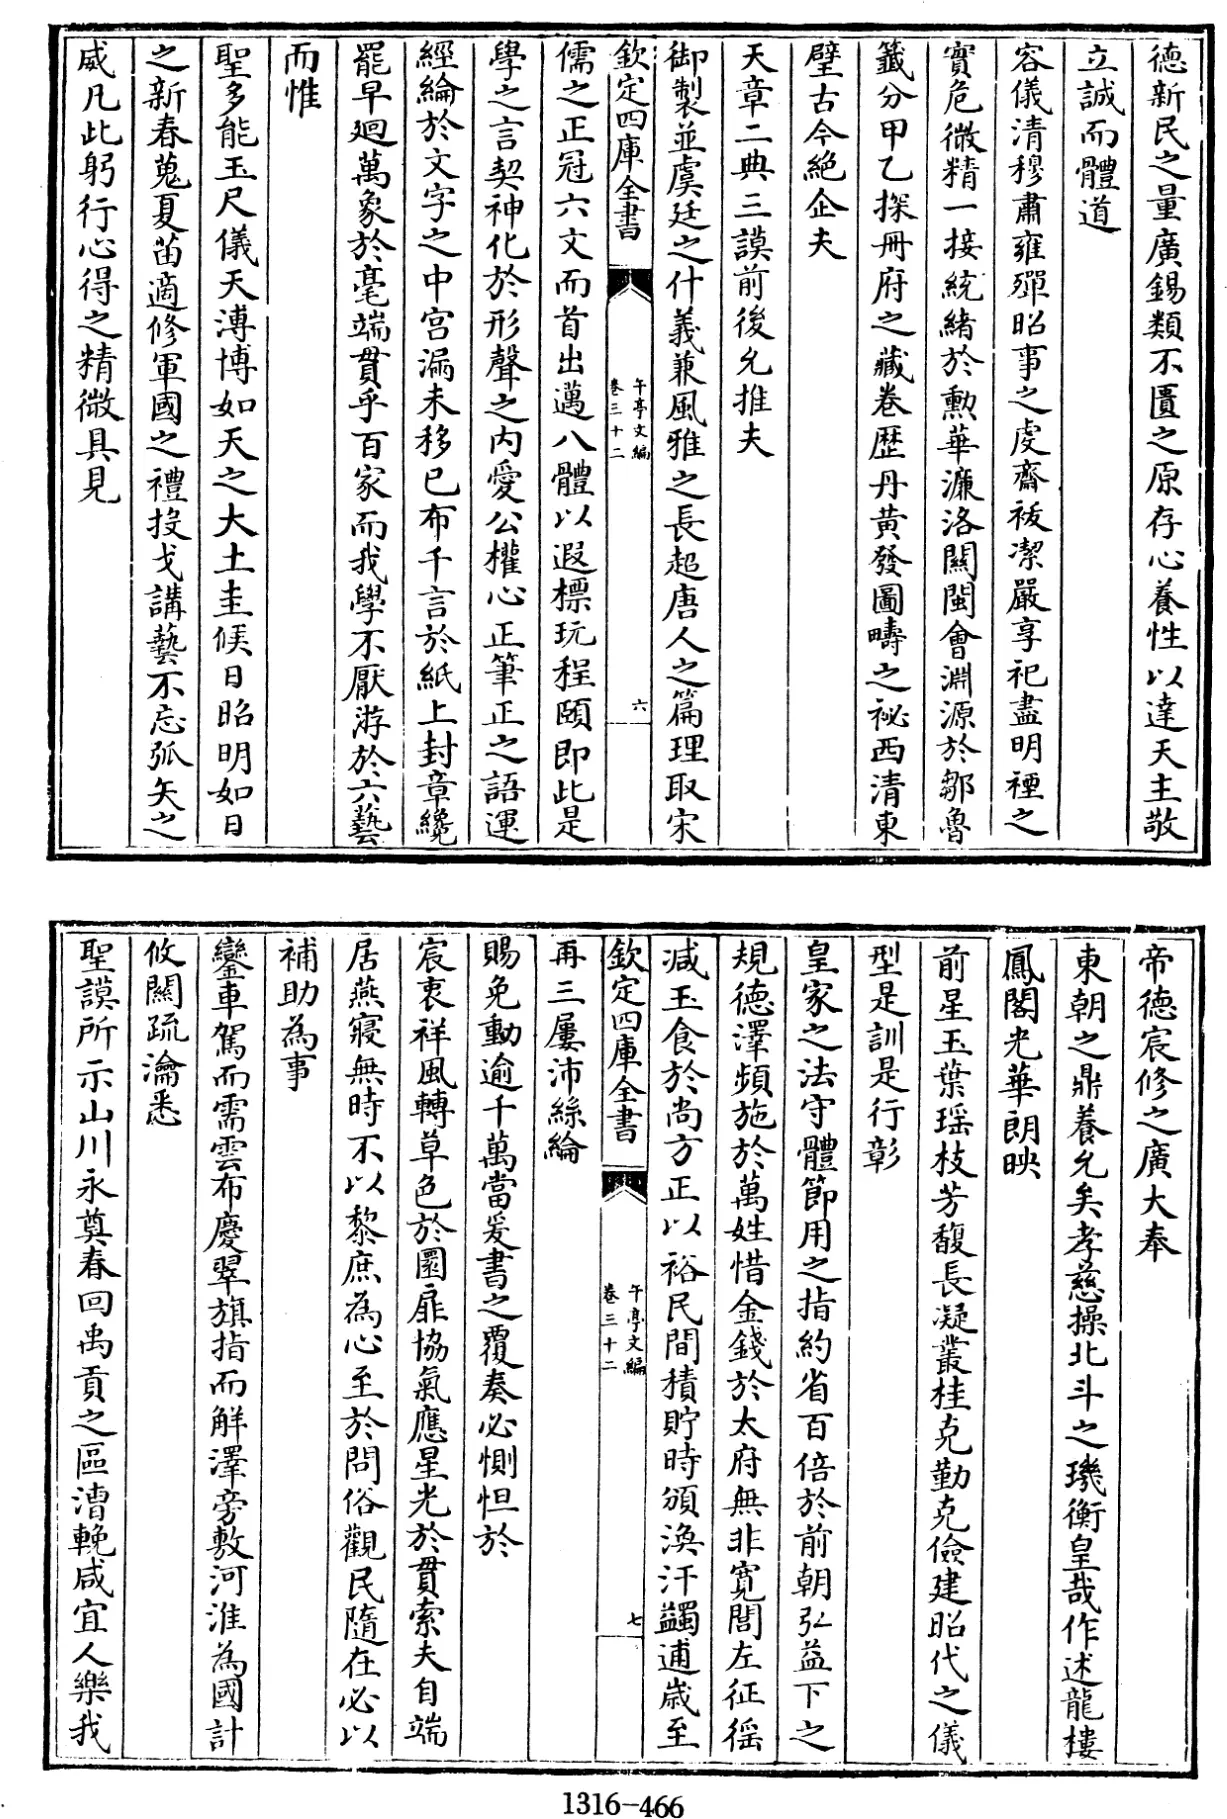 德新民之量廣錫類不匱之原存心養性以達天主敬
立誠而體道
容儀清穆肅雍殫昭事之虔齋祓潔嚴享祀盡明禋之
實危微精一接統緒於勲華濂洛關閩會淵源於鄒魯
籖分甲乙探冊府之藏卷歴丹黄發圖疇之祕西清東
壁古今絶企夫
天章二典三謨前後允推夫
御製並虞廷之什義兼風雅之長超唐人之篇理取宋
欽定四庫全書
午亭文編
卷三十二
六
儒之正冠六文而首出邁八體以遐標玩程頤即此是
學之言契神化於形聲之内愛公權心正筆正之語運
經綸於文字之中宫漏未移已布千言於紙上封章纔
罷早廻萬象於毫端貫乎百家而我學不厭游於六藝
而惟
聖多能玉尺儀天溥博如天之大土圭候日昭明如日
之新春蒐夏苗適修軍國之禮投戈講藝不忘弧矢之
威凡此躬行心得之精微具見
帝德宸修之廣大奉
東朝之鼎養允矣孝慈操北斗之璣衡皇哉作述龍樓
鳳閣光華朗映
前星玉葉瑶枝芳馥長凝叢桂克勤克儉建昭代之儀
型是訓是行彰
皇家之法守體節用之指約省百倍於前朝弘益下之
規德澤頻施於萬姓惜金錢於太府無非寛閭左征徭
減玉食於尚方正以裕民間積貯時頒渙汗蠲逋歳至
再三屢沛絲綸
欽定四庫全書
午亭文編
卷三十二
七
賜免動逾千萬當爰書之覆奏必惻怛於
宸衷祥風轉草色於圜扉協氣應星光於貫索夫自端
居燕寢無時不以黎庶為心至於問俗觀民隨在必以
補助為事
鑾車駕而需雲布慶翠旗指而解澤旁敷河淮為國計
攸關疏瀹悉
聖謨所示山川永奠春回禹貢之區漕輓咸宜人樂我
1316-466